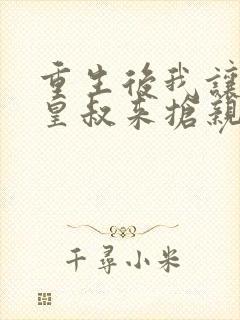 重生後我讓
皇叔來搶親
千尋小米